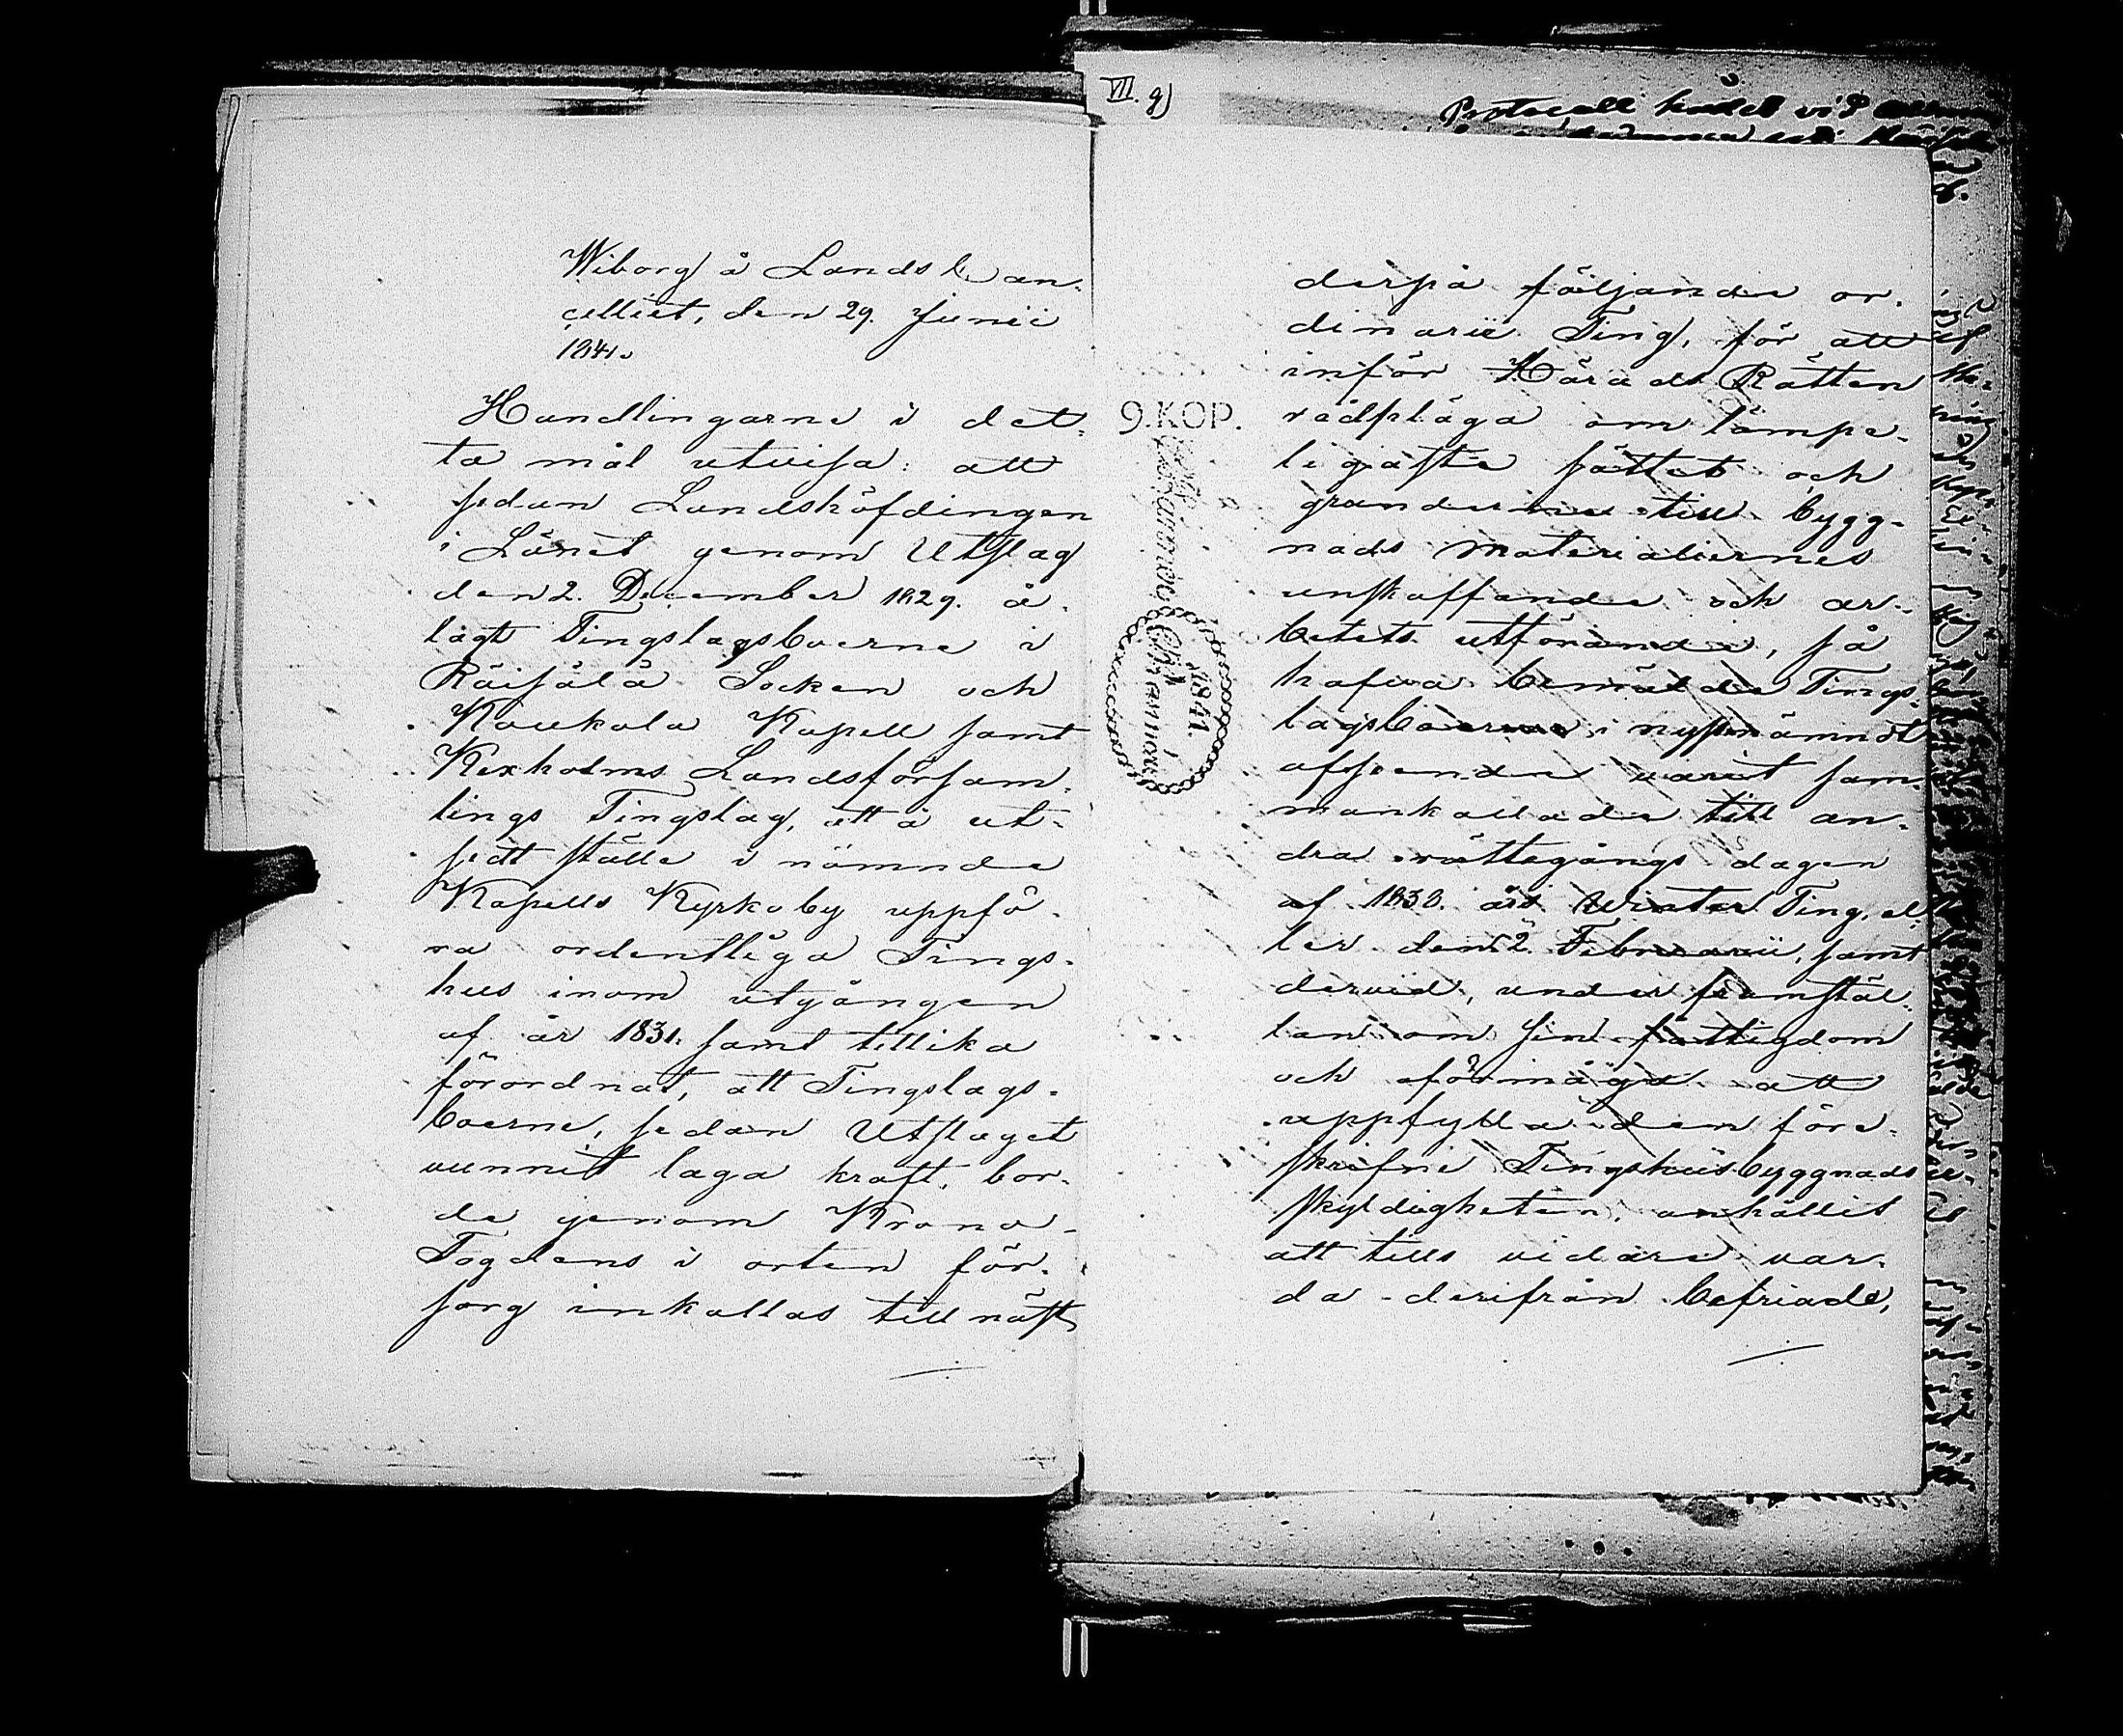 Wiborg å Landscan-
celliet, den 29. Junii
1841.
Handlingarne i det-
ta mål utvisa: att
sedan Landshöfdingen
i Länet genom Utslag
den 2. December 1829. å-
lagt Tingslagsboerne i
Räisälä Socken och
Kaukola Kapell samt
Kexholms Landsförsam-
lings Tingslag, att å ut-
sedt ställe i nämnde
Kapells Kyrkoby uppfö-
ra ordentliga Tings-
hus inom utgången
af år 1831. samt tillika
förordnat, att Tingslags-
boerne, sedan Utslaget
vunnit laga kraft, bor-
de genom Krono-
Fogdens i orten för-
sorg inkallas till näst
VII. g)
Protocoll hållet vid
9. KOP.
1841.
derpå följande or-
dinarie Ting, för att
inför Härads Rätten
rådpläga om lämpe-
ligaste sättet och
grunderne till bygg-
nads materialiernes
anskaffande och ar-
betets utförande, så
hafva bemälde Tings-
lagsboerne i nyssnämndt
afseende varit sam-
mankallade till an-
dra rättegångs dagen
af 1830. års Winter Ting, el-
ler den 2. Februarii, samt
dervid, under framstäl-
lan om sin fattigdom
och oförmåga att
uppfylla den före-
skrifne Tingshusbyggnads
skyldigheten, anhållit
att tills vidare var-
da derifrån befriade,